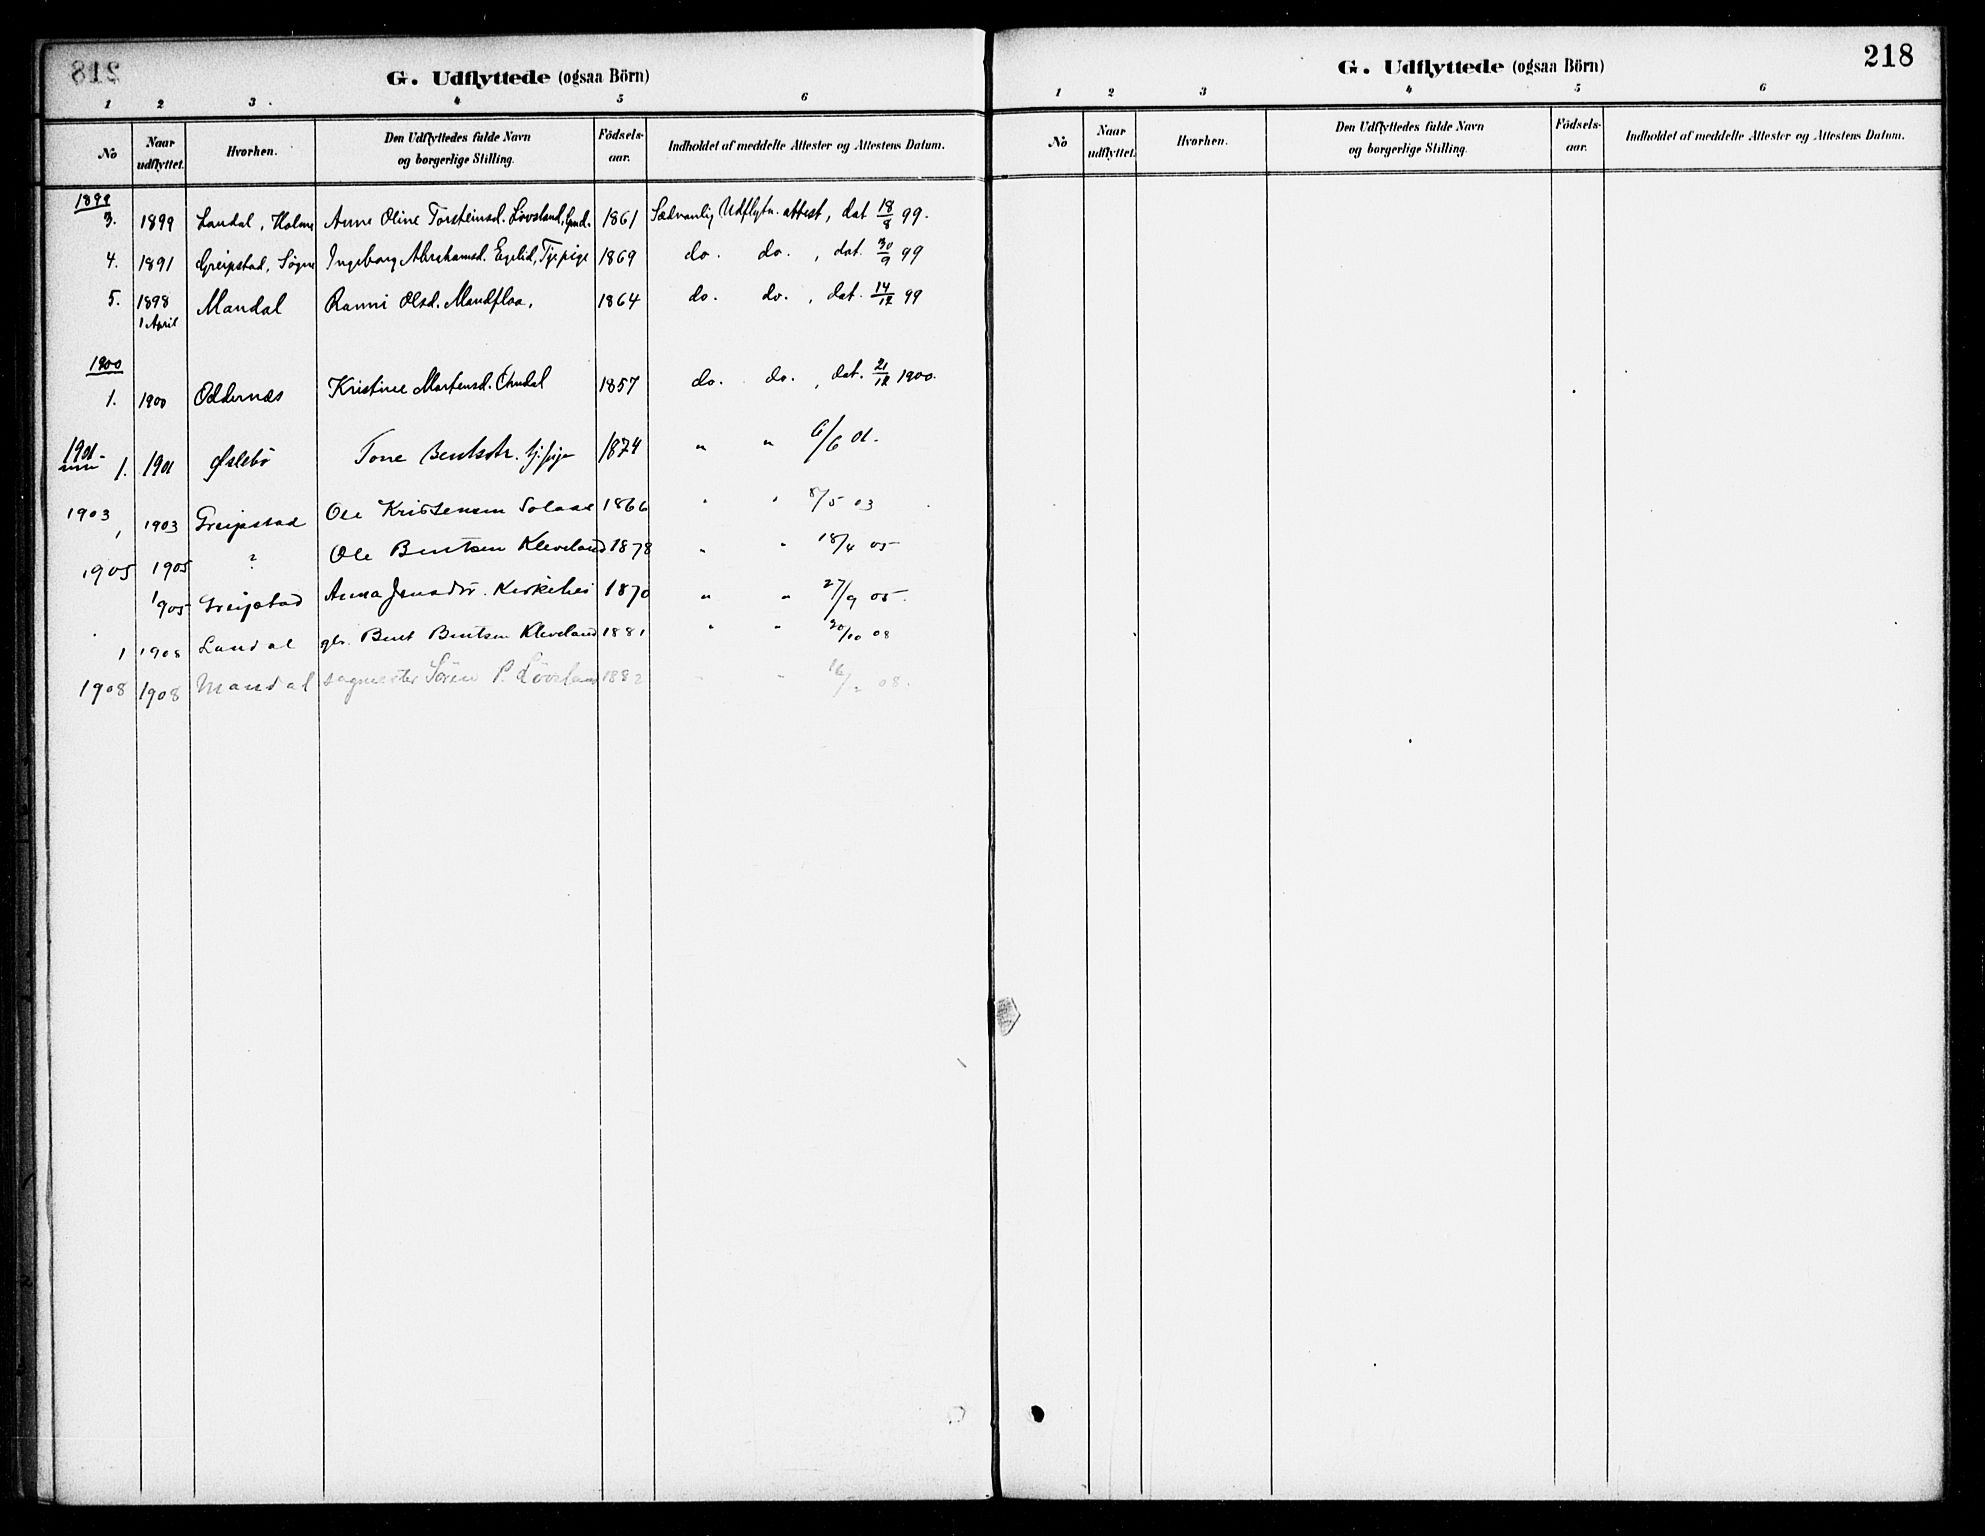 G. Udflyttede (ogsaa Börn)
1 2 3 4 5 6
No Naar udflyttet. Hvorhen. Den Udflyttedes fulde Navn og borgerlige Stilling. Födsels-aar. Indholdet af meddelte Attester og Attestens Datum.
1899
3. 1899 Laudal, Holme Anne Oline Torsteinsd. Lövsland, 1861 Sædvanlig Udflytn. attest, dat 18/8 99.
4. 1891 Greipstad, Søgne Ingeborg Abrahamsd. Egelid, Tjp.pige 1869 do. do., dat. 30/9 99
5. 1898 Mandal Ranni Olsd. Mandflaa, 1864 do. do., dat. 14/12 99
1 April
1900
1. 1900 Oddernes Kristine Mortensd. 1857 do. do., dat. 21/12 1900.
1901
1. 1901 Øslebö Tone Bentsdtr. tj.pige 1874 " " 6/6 01.
1903 1903 Greipstad Ole Kristensen Solaas 1866 " " 8/5 03
1905 1905 ? Ole Bentsen Kleveland 1878 " " 18/4 05
1905 Greipstad Anna 1870 " " 27/9 05.
1 1908 Laudal Bent Bentsen Kleveland 1881 " " 20/10 08
1908 1908 Mandal Sören P. Lövsland 1882 " " 16/2 08.
G. Udflyttede (ogsaa Börn) 218
1 2 3 4 5 6
No Naar udflyttet. Hvorhen. Den Udflyttedes fulde Navn og borgerlige Stilling. Födsels-aar. Indholdet af meddelte Attester og Attestens Datum.